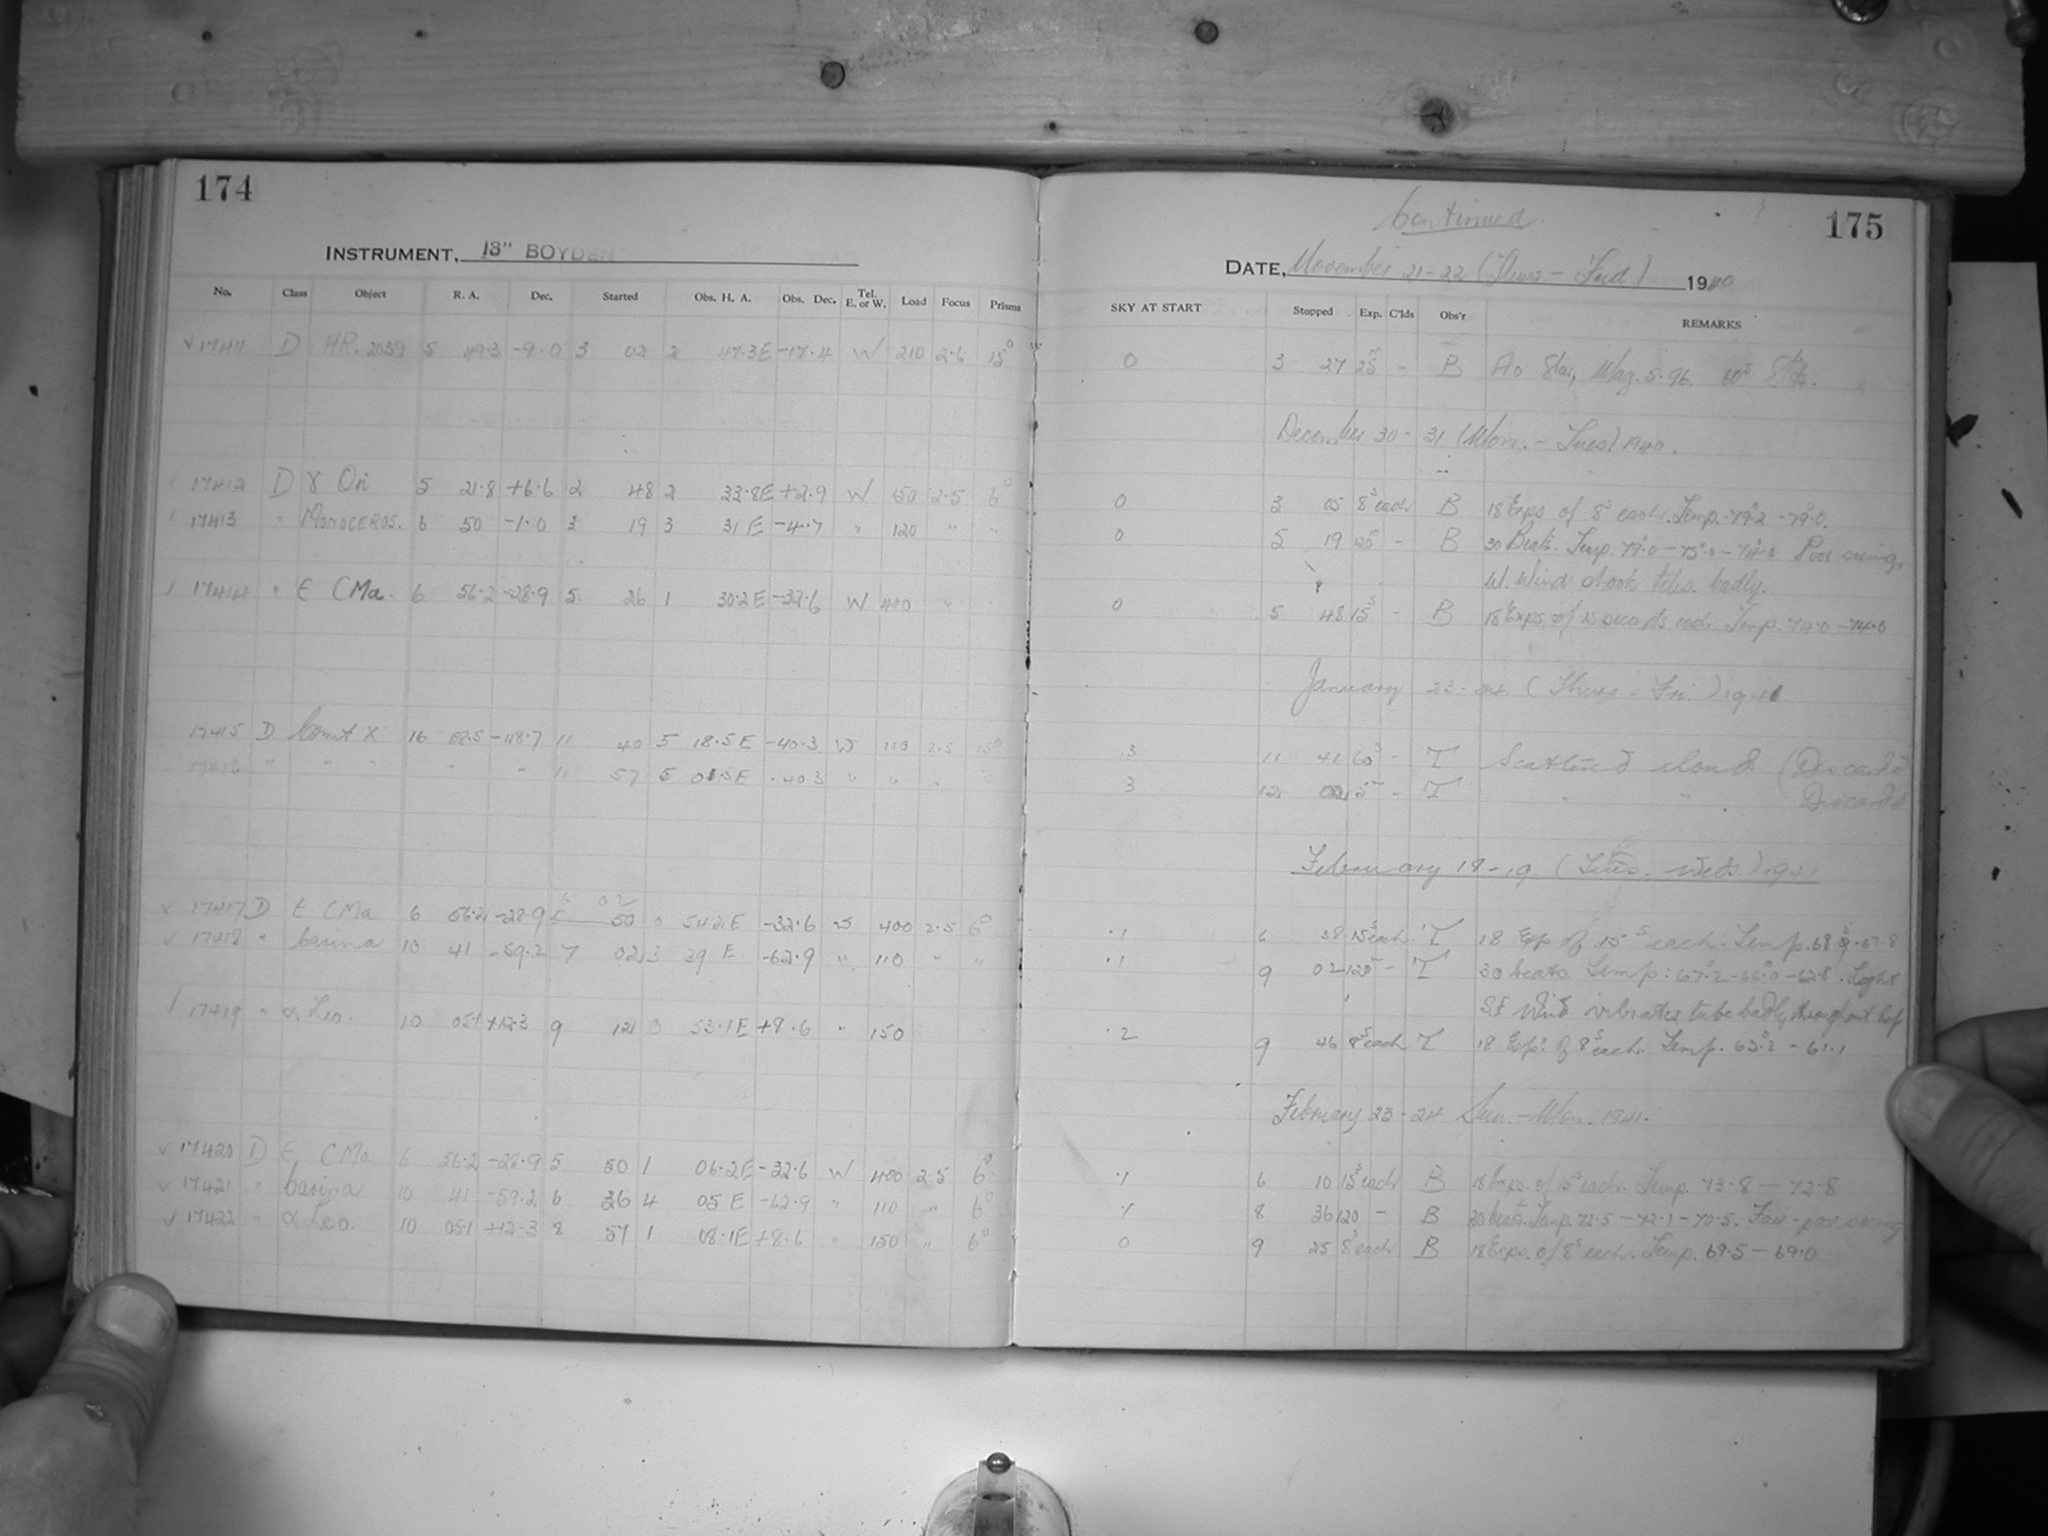 174
INSTRUMENT, 13" BOYDEN
No. Class Object R. A. Dec. Started Obs. H. A. Obs. Dec. Tel. E. or W. Load Focus Prisms
√ 17411 D HR. 2039 5 49.3 -9.0 3 02 2 47.3E -17.4 W 210 2.6 15°
17412 D γ Ori 5 21.8 +6.6 2 48 2 33.8E +2.9 W 150 2.5 6°
17413 " MONOCEROS. 6 50 -1.0 3 19 3 31 E -4.7 " 120 " "
17414 " ε CMa. 6 56.2 -28.9 5 26 1 30.2E -32.6 W 400 "
17415 D Comet X 16 -48.7 11 40 5 18.5E -40.3 W 110 2.5 15°
17416 " " " " 11 57 5 01.5E -40.3 " " " "
√ 17417 D ε CMa 6 56.2 -28.9 5 50 6 02 0 54.2E -32.6 W 400 2.5 6°
√ 17418 " Carina 10 41 -59.2 7 02 3 39 E -62.9 " 110 " "
√ 17419 " α Leo. 10 05.1 +12.3 9 12 0 53.1E +8.6 " 150
√ 17420 D ε CMa 6 56.2 -28.9 5 50 1 06.2E -32.6 W 400 2.5 6°
√ 17421 " Carina 10 41 -59.2 6 36 4 05 E -62.9 " 110 " 6°
√ 17422 " α Leo. 10 05.1 +12.3 8 57 1 08.1E +8.6 " 150 " 6°
Continued
175
DATE, November 21-22 (Thurs - Frid.) 1940
SKY AT START Stopped Exp. C'lds Obs'r REMARKS
0 3 27 25ᵐ - B A0 Star, Mag. 5.96. 60ˢ
December 30 - 31 (Mon. - Tues) 1940.
0 3 05 8ˢ each B 18 Exps of 8ˢ each. Temp. 79.2 - 79.0.
0 5 19 120ᵐ - B 30 Beats. Temp. 79.0 - 75.0 - 74.0 Poor seeing,
W. Wind shook teles. badly.
0 5 48 15ˢ - B 18 Exps of 15 seconds each. Temp. 74.0 - 74.0
January 23-24 (Thurs - Fri.) 1941.
3 11 41 60ˢ - T Scattered clouds (Discard)
3 12 02 5ᵐ - T " " Discard
February 18-19. (Tues. - Weds.) 1941
.1 6 18 15ˢ each T 18 Exp of 15ˢ each. Temp. 68.9 - 67.8
.1 9 02 120ᵐ - T 30 beats Temp: 67.2 - 66.0 - 62.8. Light
S.E wind vibrates tube badly throughout exp
.2 9 46 8ˢ each T 18 Exp: of 8ˢ each. Temp. 63.2 - 61.1
February 23-24 Sun. - Mon. 1941.
.1 6 10 15ˢ each B 18 Exps. of 15ˢ each. Temp. 73.8 - 72.8
.1 8 36 120 - B 30 beats. Temp. 72.5 - 72.1 - 70.5. Fair - poor seeing
0 9 25 8ˢ each B 18 Exps. of 8ˢ each. Temp. 69.5 - 69.0